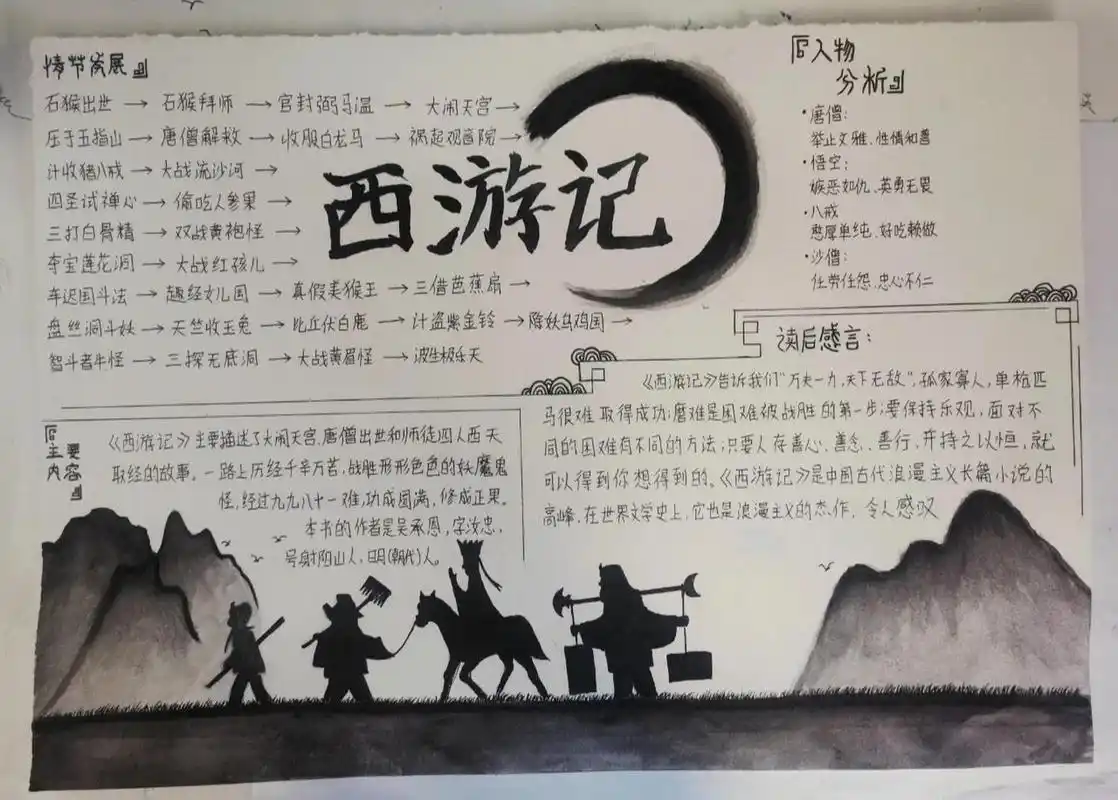 情节发展
石猴出世 → 石猴拜师 → 官封弼马温 → 大闹天宫 →
压于五指山 → 唐僧解救 → 收服白龙马 → 祸起观音院 →
计收猪八戒 → 大战流沙河 →
四圣试禅心 → 偷吃人参果 →
三打白骨精 → 双战黄袍怪 →
夺宝莲花洞 → 大战红孩儿 →
车迟国斗法 → 趣经女儿国 → 真假美猴王 → 三借芭蕉扇 →
盘丝洞斗妖 → 天竺收玉兔 → 比丘伏白鹿 → 计盗紫金铃 → 降妖乌鸡国 →
智斗青牛怪 → 三探无底洞 → 大战黄眉怪 → 波生极乐天
西游记
『人物
分析』
·唐僧:
举止文雅、性情和善
·悟空:
嫉恶如仇、英勇无畏
·八戒
憨厚单纯、好吃赖做
·沙僧:
任劳任怨、忠心不仁
『主要
内容』
《西游记》主要描述了大闹天宫,唐僧出世和师徒四人西天
取经的故事。一路上历经千辛万苦,战胜形形色色的妖魔鬼
怪,经过九九八十一难,功成圆满,修成正果。
本书的作者是吴承恩,字汝忠、
号射阳山人,明(朝代)人。
读后感言:
《西游记》告诉我们“万夫一力,天下无敌”,孤家寡人,单枪匹
马很难取得成功;磨难是困难被战胜的第一步;要保持乐观,面对不
同的困难有不同的方法;只要人存善心、善念、善行,并持之以恒,就
可以得到你想得到的。《西游记》是中国古代浪漫主义长篇小说的
高峰,在世界文学史上,它也是浪漫主义的杰作,令人感叹